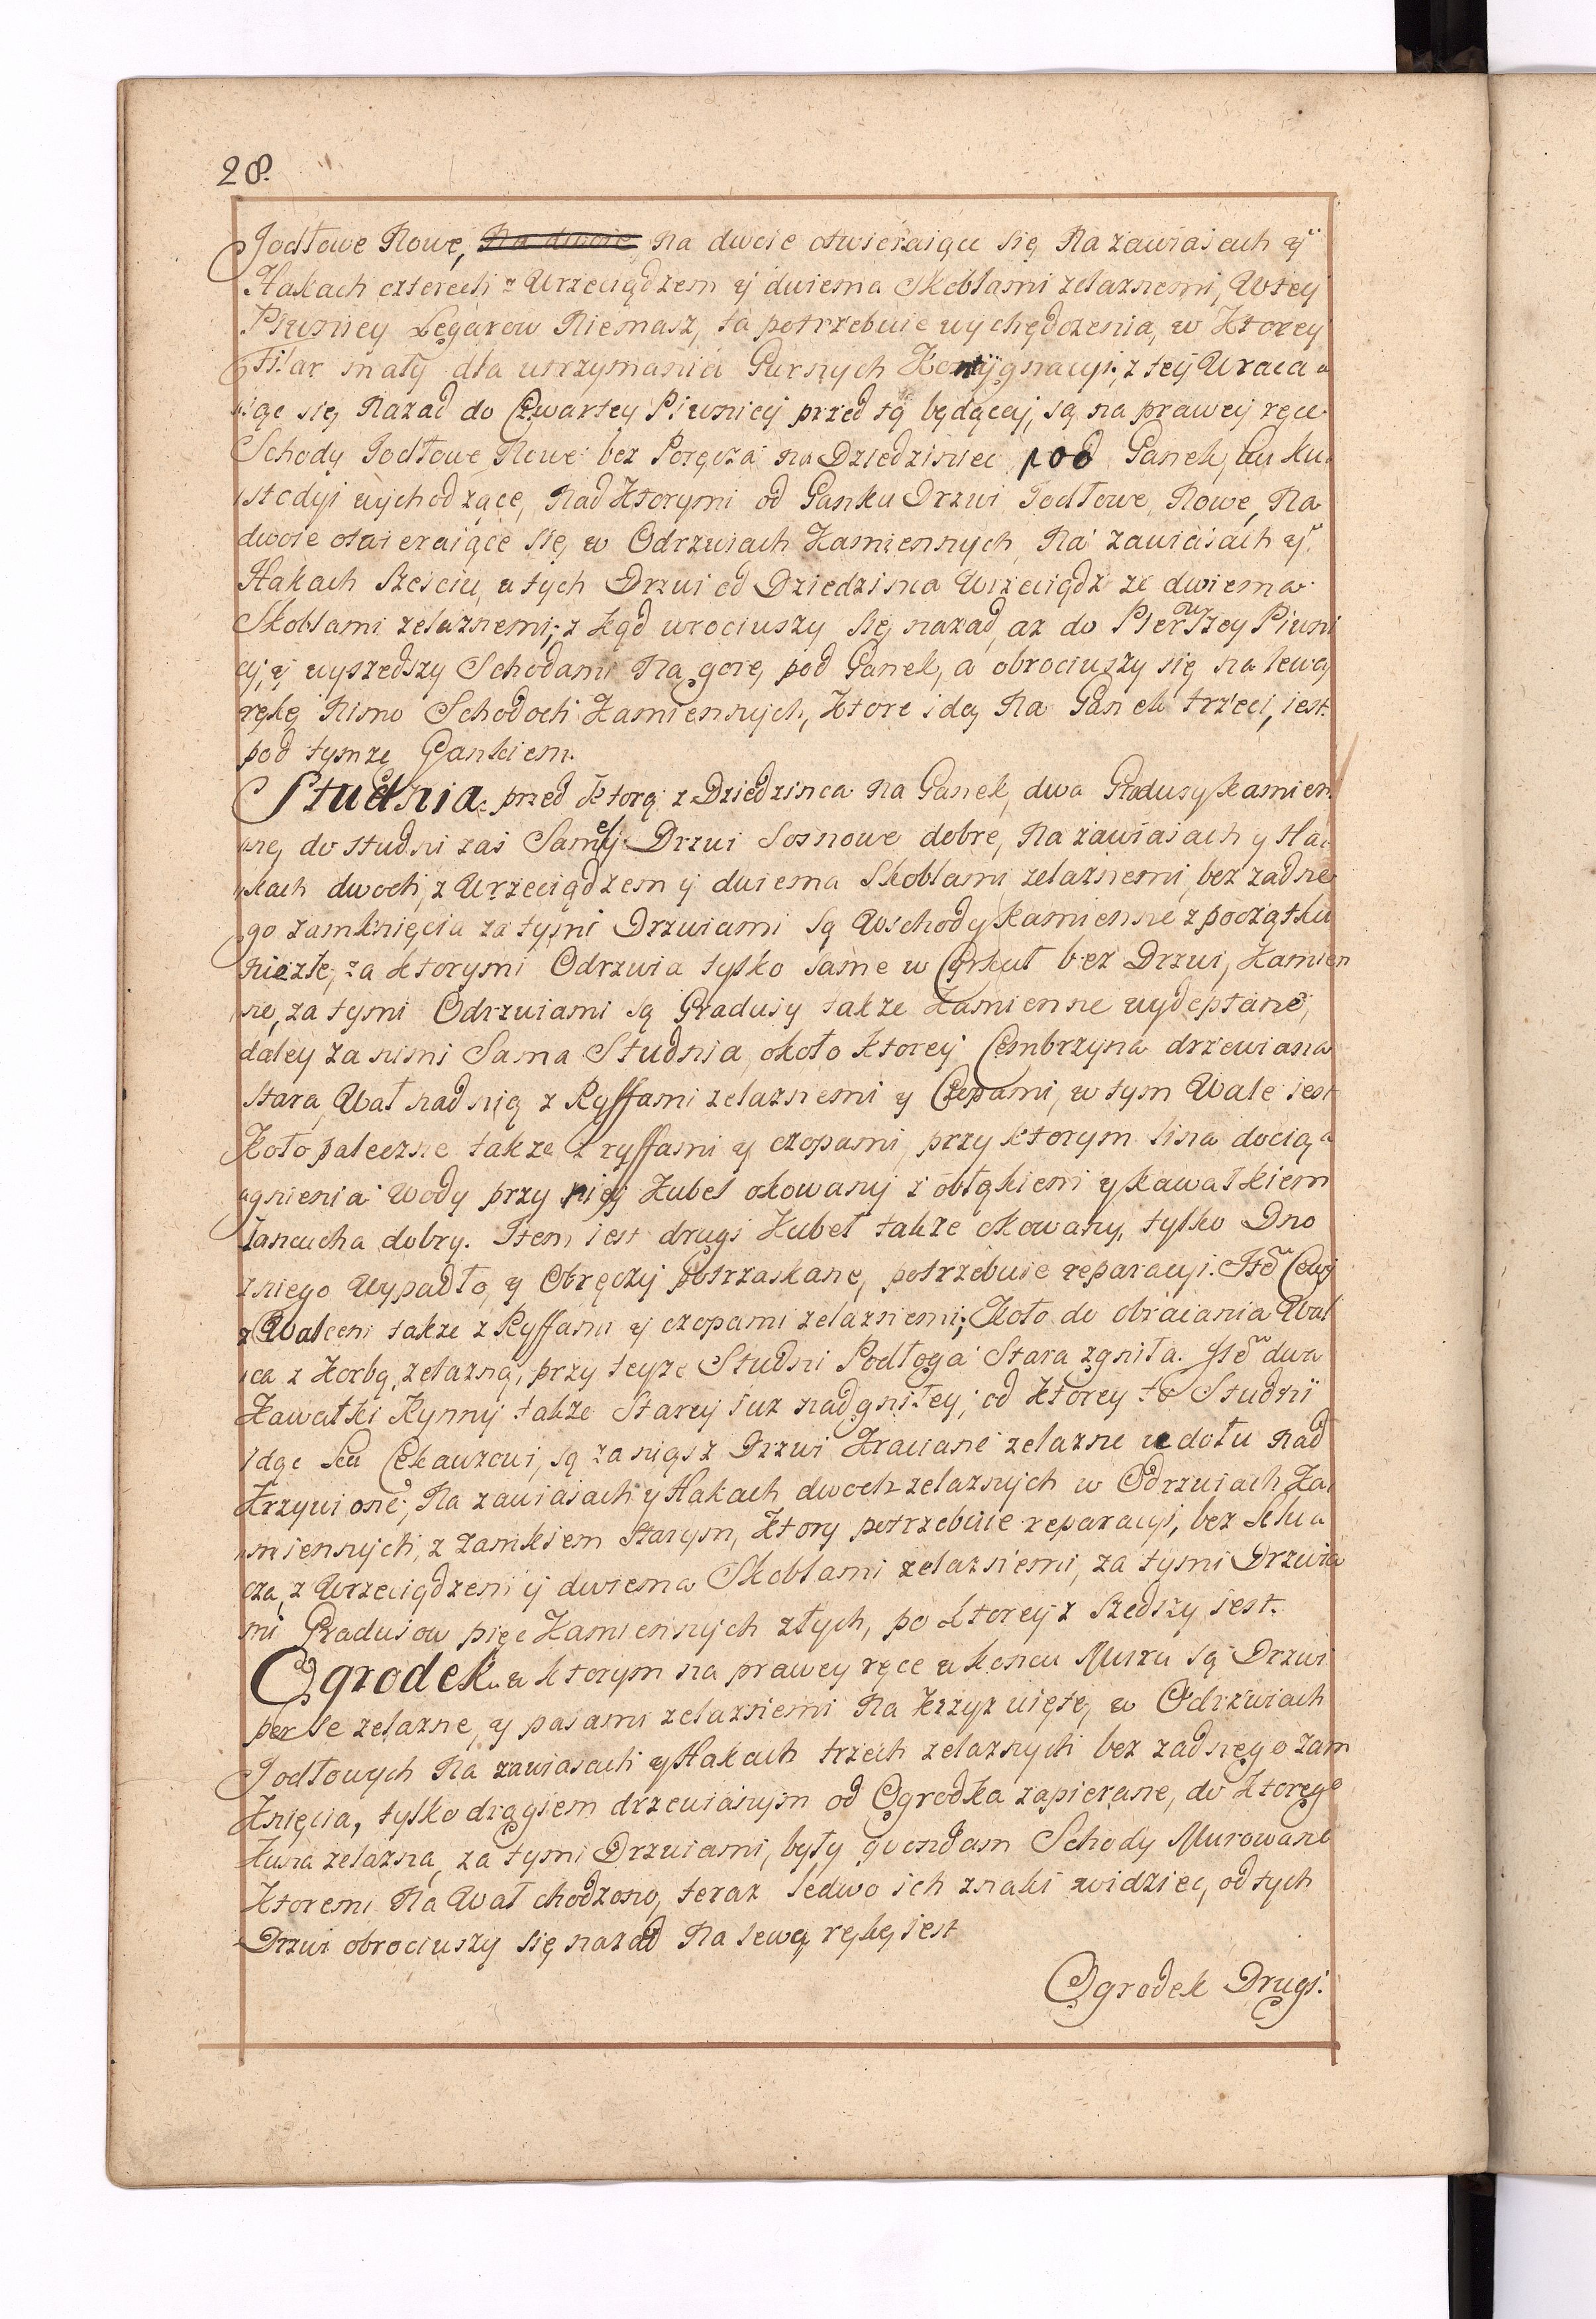 28.
Jodłowe Nowe, Na dwoie, na dwoie otwieraiące się Na zawiasach ÿ
Hakach czterech z Wrzeciądzem ÿ dwiema Skoblami zelaznemi, W tey
Piwnicy Legarow Niemasz, ta potrzebuie wychędozenia, w Ktorey
Filar mały dla utrzymania Gurnych Kontÿgnacyi; z teÿ Wraca
iąc się Nazad do Czwartey Piwnicÿ przed tą będącaÿ, są na praweÿ ręce
Schody Jodłowe Nowe bez Poręcza na Dziedziniec pod Ganek, ku ku
stodyi wychodzące, Nad Ktorymi od Ganku Drzwi Jodłowe, Nowe, Na
dwoie otwieraiące się, w Odrzwiach Kamiennych, Na zawiasach ÿ
Hakach Szesciu, u tych Drzwi od Dziedzinca Wrzeciądz ze dwiema
Skoblami zelaznemi; z Kąd wrociwszy się nazad, az do Pierwszey Piwni
cÿ, ÿ wyszedszy Schodami Na gorę, pod Ganek, a obrociwszy się na lewą
rękę Nimo Schodoch Kamiennych, Ktore idą Na Ganek trzeci, iest.
pod tymze Gankiem.
Studnia. przed Ktorą z Dziedzinca Na Ganek, dwa Gradusy Kamien
ne, do studni zas Sameÿ Drzwi Sosnowe dobre, Na zawiasach y Ha
kach dwoch, z Wrzeciądzem ÿ dwiema Skoblami zelaznemi, bez zadne
go zamknięcia za tymi Drzwiami są Wschody Kamienne z początku
niezłe, za Ktorymi Odrzwia tylko same w Cyrkuł bez Drzwi, Kamien
ne, za tymi Odrzwiami są Gradusy takze Kamienne wydeptane,
daley za nimi Sama Studnia, około Ktorey Cembrzyna drzewiana
stara, Wał nad nią z Ryffami zelaznemi y Czopami, w tym Wale iest
Koło paleczne takze z ryffami ÿ czopami, przy ktorym lina do cią
gnienia Wody przy nieÿ Kubeł okowany z obłąkiem y kawałkiem
Łancucha dobry. Item iest drugi Kubeł takze okowany, tylko Dno
z niego Wypadło, ÿ Obręczy potrzaskane, potrzebuie reparacyi. Itẽ Cewÿ
z Walcem takze z Ryffami ÿ czopami zelaznemi; Koło do obracania Wal
ca z Korbą, zelazną, przy teyze Studni Podłoga Stara zgniła. Jtẽ dwa
Kawałki Rynny takze Starey iuz nadgniłey; od Ktorey to Studni
idąc ku Cekauzowi, są za nią z Drzwi Kraciane zelazne u dołu nad
Krzywione, Na zawiasach y Hakach dwoch zelaznych w Odrzwiach Ka
miennych, z zamkiem starym, Ktory potrzebuie reparacyi, bez Klu
cza, z Wrzeciądzem ÿ dwiema Skoblami zelaznemi, za tymi Drzwia
mi Gradusow pięc Kamiennych złych, po Ktorey z Szedszy iest.
Ogrodek. w ktorym na prawey ręce w koncu Muru są Drzwi
per se zelazne, ÿ pasami zelaznemi Na Krzyz uięte, w Odrzwiach
Jodłowych Na zawiasach y Hakach trzech zelaznych bez zadnego zam
Knięcia, tylko drągiem drzewianym od Ogrodka zapierane, do Ktorego
Kuna zelazna, za tymi Drzwiami, były quondam Schody Murowane
Ktoremi Na Wał chodzono, teraz ledwo ich znaki widziec, od tych
Drzwi obrociwszy się nazad Na lewą rękę iest
Ogrodek Drugi.